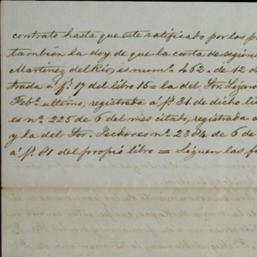 contrato hasta que esté ratificado por los p
también la doy de que la carta de segurid
Martinez del Rio, es num.º 462. de 12 d
trada a f.s 17 del libro 15 = la del Sor.
Feb.º ultimo, registrada a f.s 31 de dicho li
es n.º 225 de 6 del mes citado, registrada a
y la del Sor. Jecker es n.º 2384 de 6 de
a f.s 81 del propio libro = Siguen las f